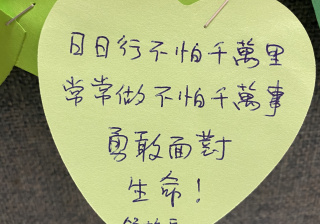 日日行不怕千萬里
常常做不怕千萬事
勇敢面對
生命！